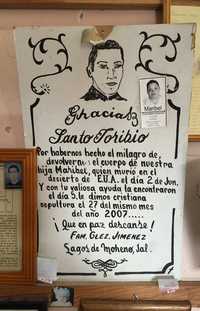 Gracias
Santo Toribio
Por habernos hecho el milagro de,
devolvernos el cuerpo de nuestra
hija Maribel, quien murió en el
desierto de E.U.A. el día 2 de Jun,
Y con tu valiosa ayuda la encontraron
el día 5, le dimos cristiana
sepultura el 27 del mismo mes
del año 2007.....
¡Que en paz descanse!
FAM. GLEZ. JIMENEZ
Lagos de Moreno, Jal.
Maribel